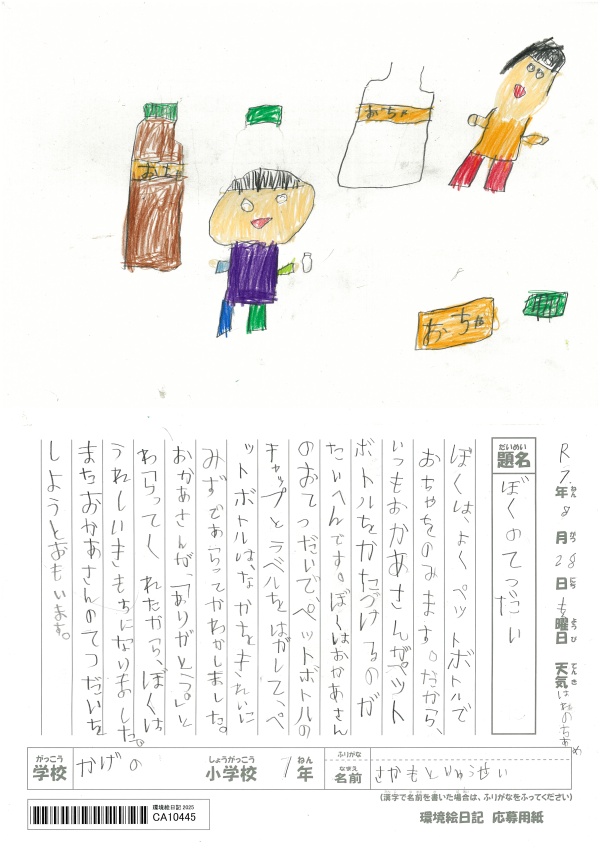 おちゃ
おちゃ
おちゃ
R7年8月28日 もく曜日 天気 はれのちあめ
ねん がつ にち ようび てんき
だいめい
題名
ぼくのてつだい
ぼくは、よくペットボトルで
おちゃをのみます。だから、
いつもおかあさんがペット
ボトルをかたづけるのが
たいへんです。ぼくはおかあさん
のおてつだいで、ペットボトルの
キャップとラベルをはがして、ペ
ットボトルは、なかをきれいに
みずであらってかわかしました。
おかあさんが、「ありがとう。」と
わらってくれたから、ぼくは
うれしいきもちになりました。
またおかあさんのてつだいを
しようとおもいます。
がっこう しょうがっこう ねん ふりがな
学校 かげの 小学校 1年
なまえ
名前 さかもと
(漢字で名前を書いた場合は、ふりがなをふってください)
環境絵日記 応募用紙
環境絵日記 2025
CA10445